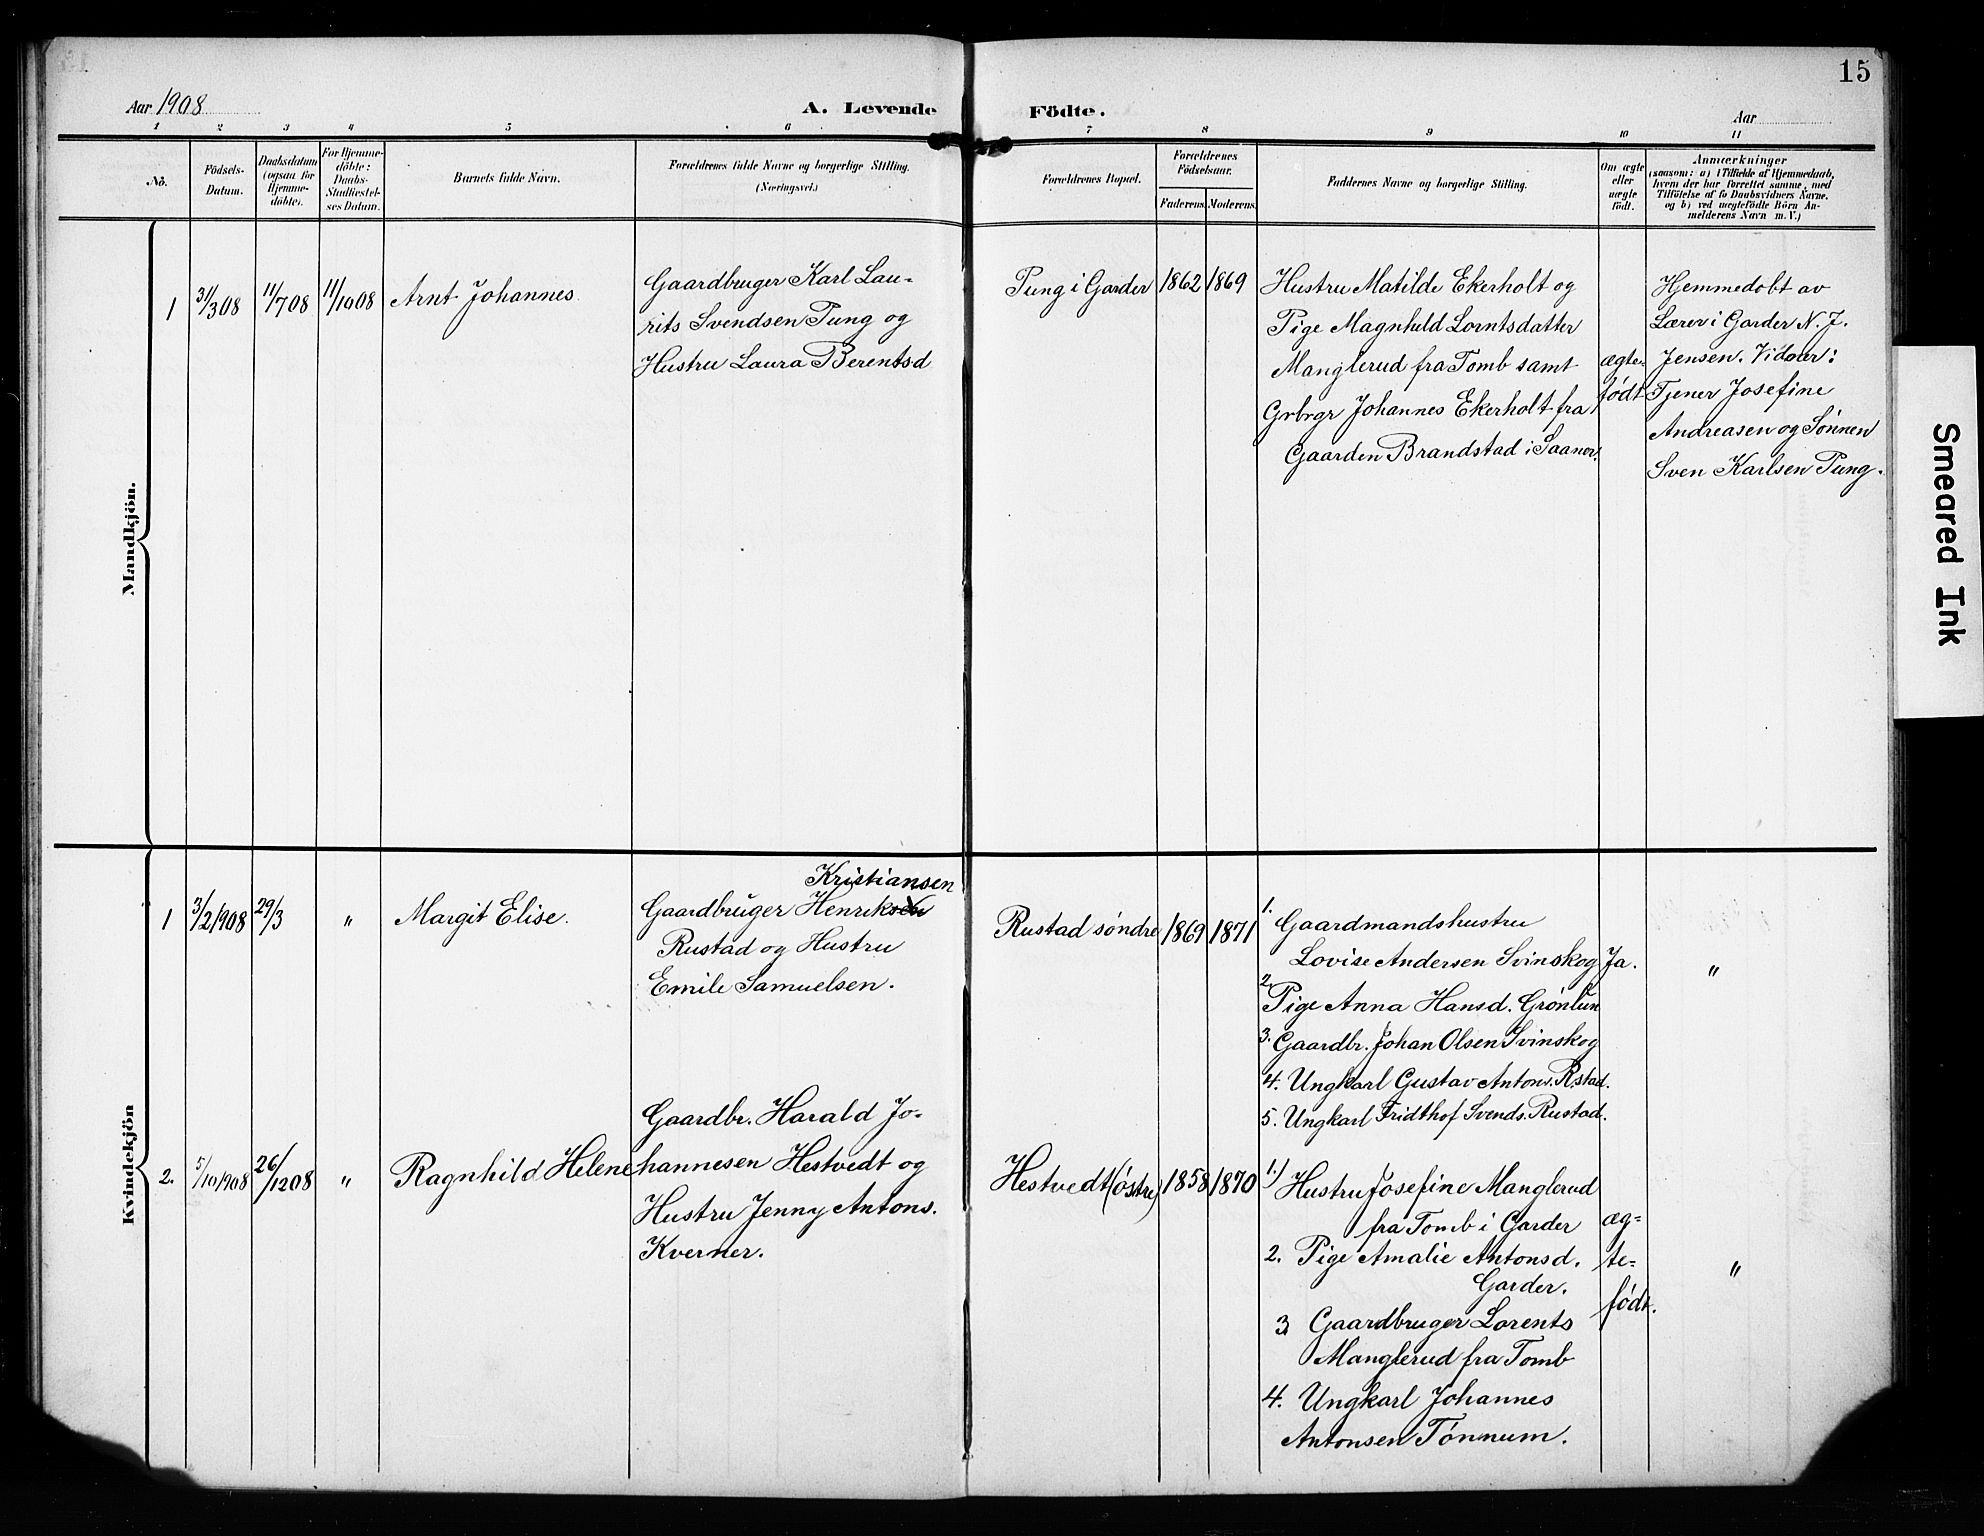 15
Aar 1908
A. Levende Födte.
Aar
1 2 3 4 5 6 7 8 9 10 11
No.
Födsels-
Datum.
Daabsdatum
(ogsaa for
Hjemme-
döbte).
For Hjemme-
döbte:
Daabs-
Stadfæstel-
ses Datum.
Barnets fulde Navn.
Forældrenes fulde Navne og borgerlige Stilling.
(Næringsvei.)
Forældrenes Bopæl.
Forældrenes
Födselsaar.
Faderens. Moderens.
Faddernes Navne og borgerlige Stilling.
Om ægte
eller
uægte
född.
Anmærkninger
(saasom: a) i Tilfælde af Hjemmedaab,
hvem der har forrettet samme, med
Tilföielse af to Daabsvidners Navne.
og b) ved uægtefödte Börn An-
melderens Navn m. V.)
Mandkjön.
1
31/3 08
11/7 08
11/10 08
Arnt Johannes
Gaardbruger Karl Lau-
rits Svendsen Pung og
Hustru Laura Berentsd
Pung i Garder
1862
1869
Hustru Matilde Ekerholt og
Pige Magnhild Lorntsdatter
Manglerud fra Tomb samt
Grbrgr Johannes Ekerholt fra
Gaarden Brandstad i Saaner.
ægte-
født
Hjemmedøbt av
Lærer i Garder N. J.
Jensen. Vidner:
Tjener Josefine
Andreasen og Sønnen
Sven Karlsen Pung.
Kvindekjön
1
3/2 1908
29/3
"
Margit Elise.
Kristiansen
Gaardbruger Henriksen
Rustad og Hustru
Emile Samuelsen.
Rustad søndre
1869
1871
1. Gaardmandshustru
Lovise Andersen Svinskog
2. Pige Anna Hansd. Grønlun
3. Gaardbr. Johan Olsen Svinskog
4. Ungkarl Gustav Antons. Rstad.
5. Ungkarl Fridthof Svends. Rustad.
Ja.
"
2.
5/10 1908
26/12 08
"
Ragnhild Helene
Gaardbr. Harald Jo-
hannesen Hestvedt og
Hustru Jenny Antons.
Kverner.
Hestvedt (østre)
1858
1870
1.) Hustru Josefine Manglerud
fra Tomb i Garder
2. Pige Amalie Antonsd.
Garder.
3 Gaardbruger Lorents
Manglerud fra Tomb
4. Ungkarl Johannes
Antonsen Tønnum.
æg-
te-
født.
"
Smeared Ink